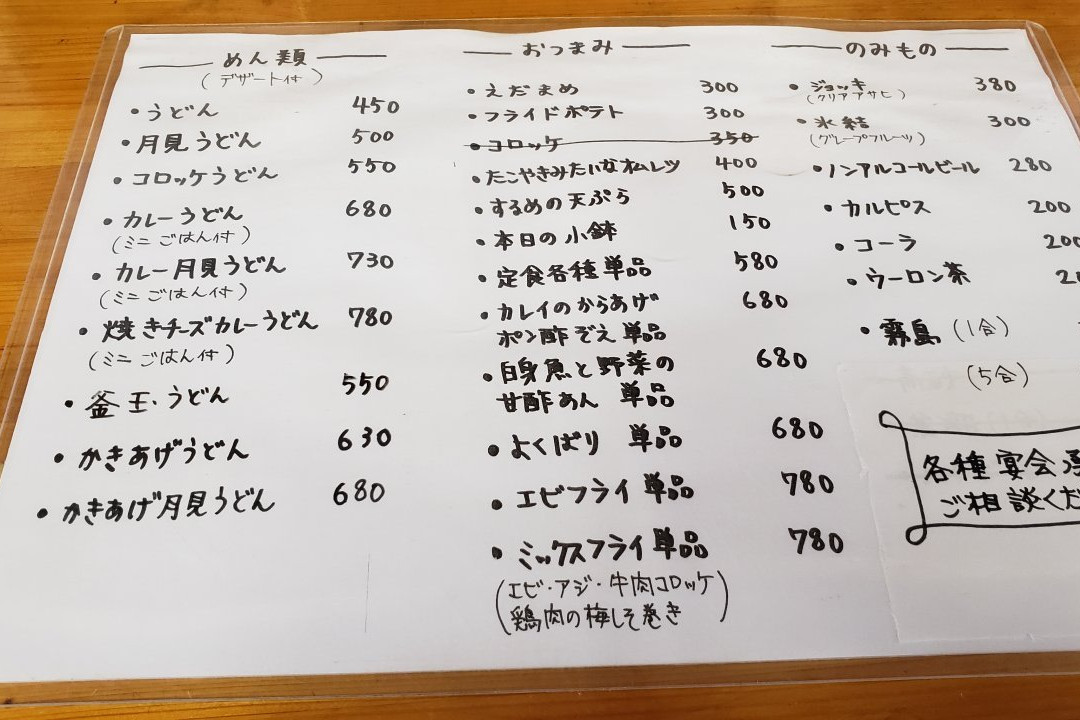 めん類
(デザート付)
・うどん 450
・月見うどん 500
・コロッケうどん 550
・カレーうどん 680
(ミニごはん付)
・カレー月見うどん 730
(ミニごはん付)
・焼きチーズカレーうどん 780
(ミニごはん付)
・釜玉うどん 550
・かきあげうどん 630
・かきあげ月見うどん 680
おつまみ
・えだまめ 300
・フライドポテト 300
・コロッケ 350
・たこやきみたいなオムレツ 400
・するめの天ぷら 500
・本日の小鉢 150
・定食各種単品 580
・カレイのからあげ 680
ポン酢ぞえ単品
・白身魚と野菜の 680
甘酢あん 単品
・よくばり 単品 680
・エビフライ単品 780
・ミックスフライ単品 780
(エビ・アジ・牛肉コロッケ
鶏肉の梅しそ巻き)
のみもの
・ジョッキ 380
(クリアアサヒ)
・氷結 300
(グレープフルーツ)
・ノンアルコールビール 280
・カルピス 200
・コーラ 200
・ウーロン茶
・霧島(1合)
(5合)
各種宴会
ご相談くだ